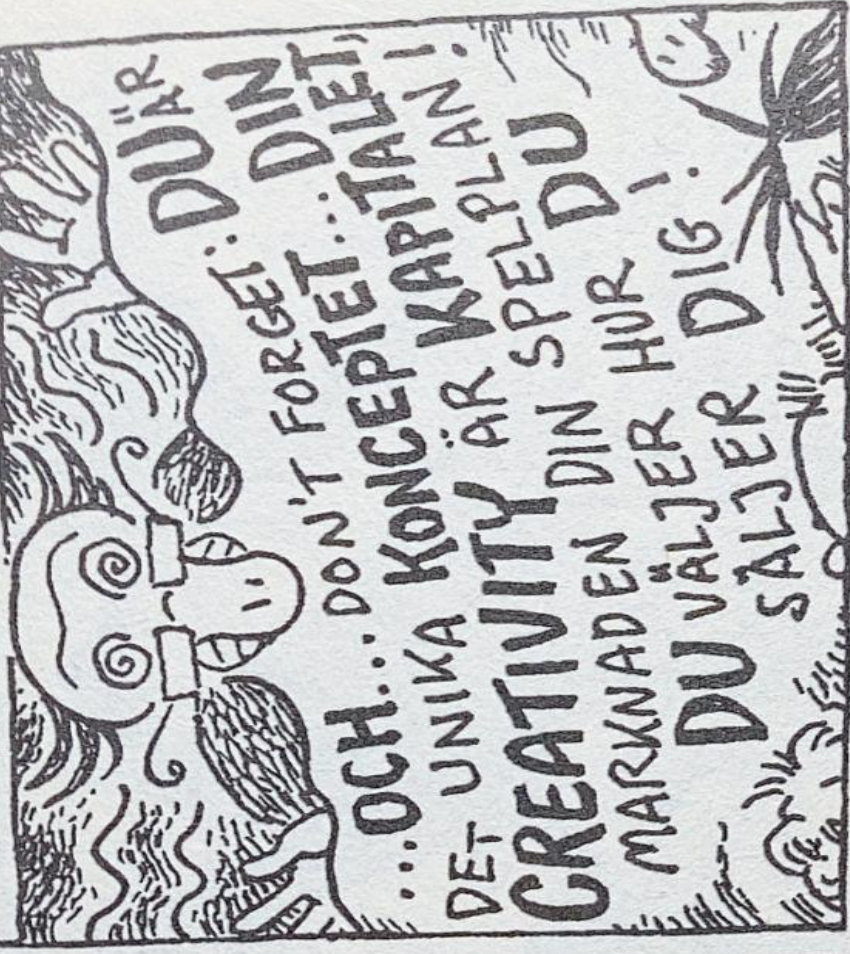 ...OCH... DON'T FORGET: DU ÄR
DET UNIKA KONCEPTET... DIN
CREATIVITY ÄR KAPITALET,
MARKNADEN DIN SPELPLAN!
DU VÄLJER HUR DU
SÄLJER DIG!